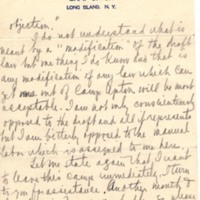 LONG ISLAND, N. Y.
objection."
I do not understand what is
meant by a "modification" of the draft
law but one thing I do know has that is
any modification of any law which can
get me out of Camp Upton will be most
acceptable. I am not only conscientiously
opposed to the draft and all it represents
but I am bitterly opposed to the manual
labor which is assigned to me here.
Let me state again that I want
to leave this camp immediately. I turn
to you for assistance. Another month